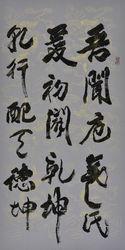 吾闻庖羲氏
爰初闢乾坤
乾行配天德坤